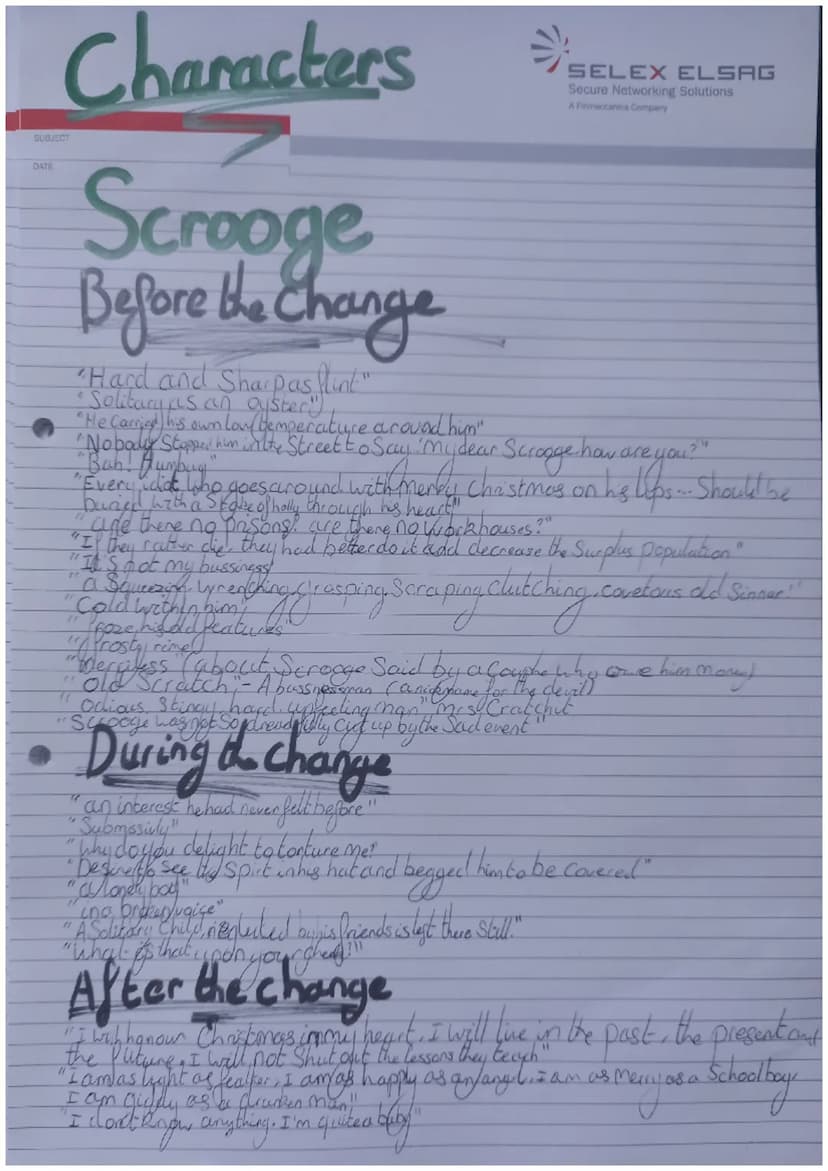 Characters
SELEX ELSAG
Secure Networking Solutions
A Finmeccanica Company
SUBJECT
DATE
Scrooge
Before the Change
"Hard and Sharp as flint"
"Solitary as an oyster"
"He Carried his own low temperature around him"
"Nobody Stopped him in the Street to Say 'My dear Scrooge how are you?"
"Bah! Humbug"
"Every idiot who goes around with Merry Christmas on his lips... Should be
buried with a Stake of holly through his heart"
"are there no prisons? are there no workhouses?"
"If they rather die, they had better do it and decrease the Surplus population"
"It's not my bussness"
"a Squeezing, wrenching, grasping, Scraping, clutching, covetous old Sinner!"
"Cold within him"
"froze his old features"
"frosty rime"
"Merciless" (about Scrooge Said by a Couple who owe him money)
"Old Scratch" - A bussnessman (a nickname for the devil)
"Odious, Stingy, hard, unfeeling man" Mrs Cratchit
"Scrooge was not So dreadfully Cut up by the Sad event"
During the change
"an interest he had never felt before"
"Submissivly"
"Why do you delight to torture me?
"Desire to See the Spirt in his hat and begged him to be Covered"
"a lonely boy"
"in a broken voice"
"A Solitary Child, neglected by his friends is left there Still."
"What is that upon your cheek?"
After the change
"I will honour Christmas in my heart, I will live in the past, the present and
the future, I will not Shut out the lessons they teach"
"I am as light as feather, I am as happy as an angel, I am as merry as a Schoolboy,
I am giddy as a drunken man"
"I don't know anything. I'm quite a baby"